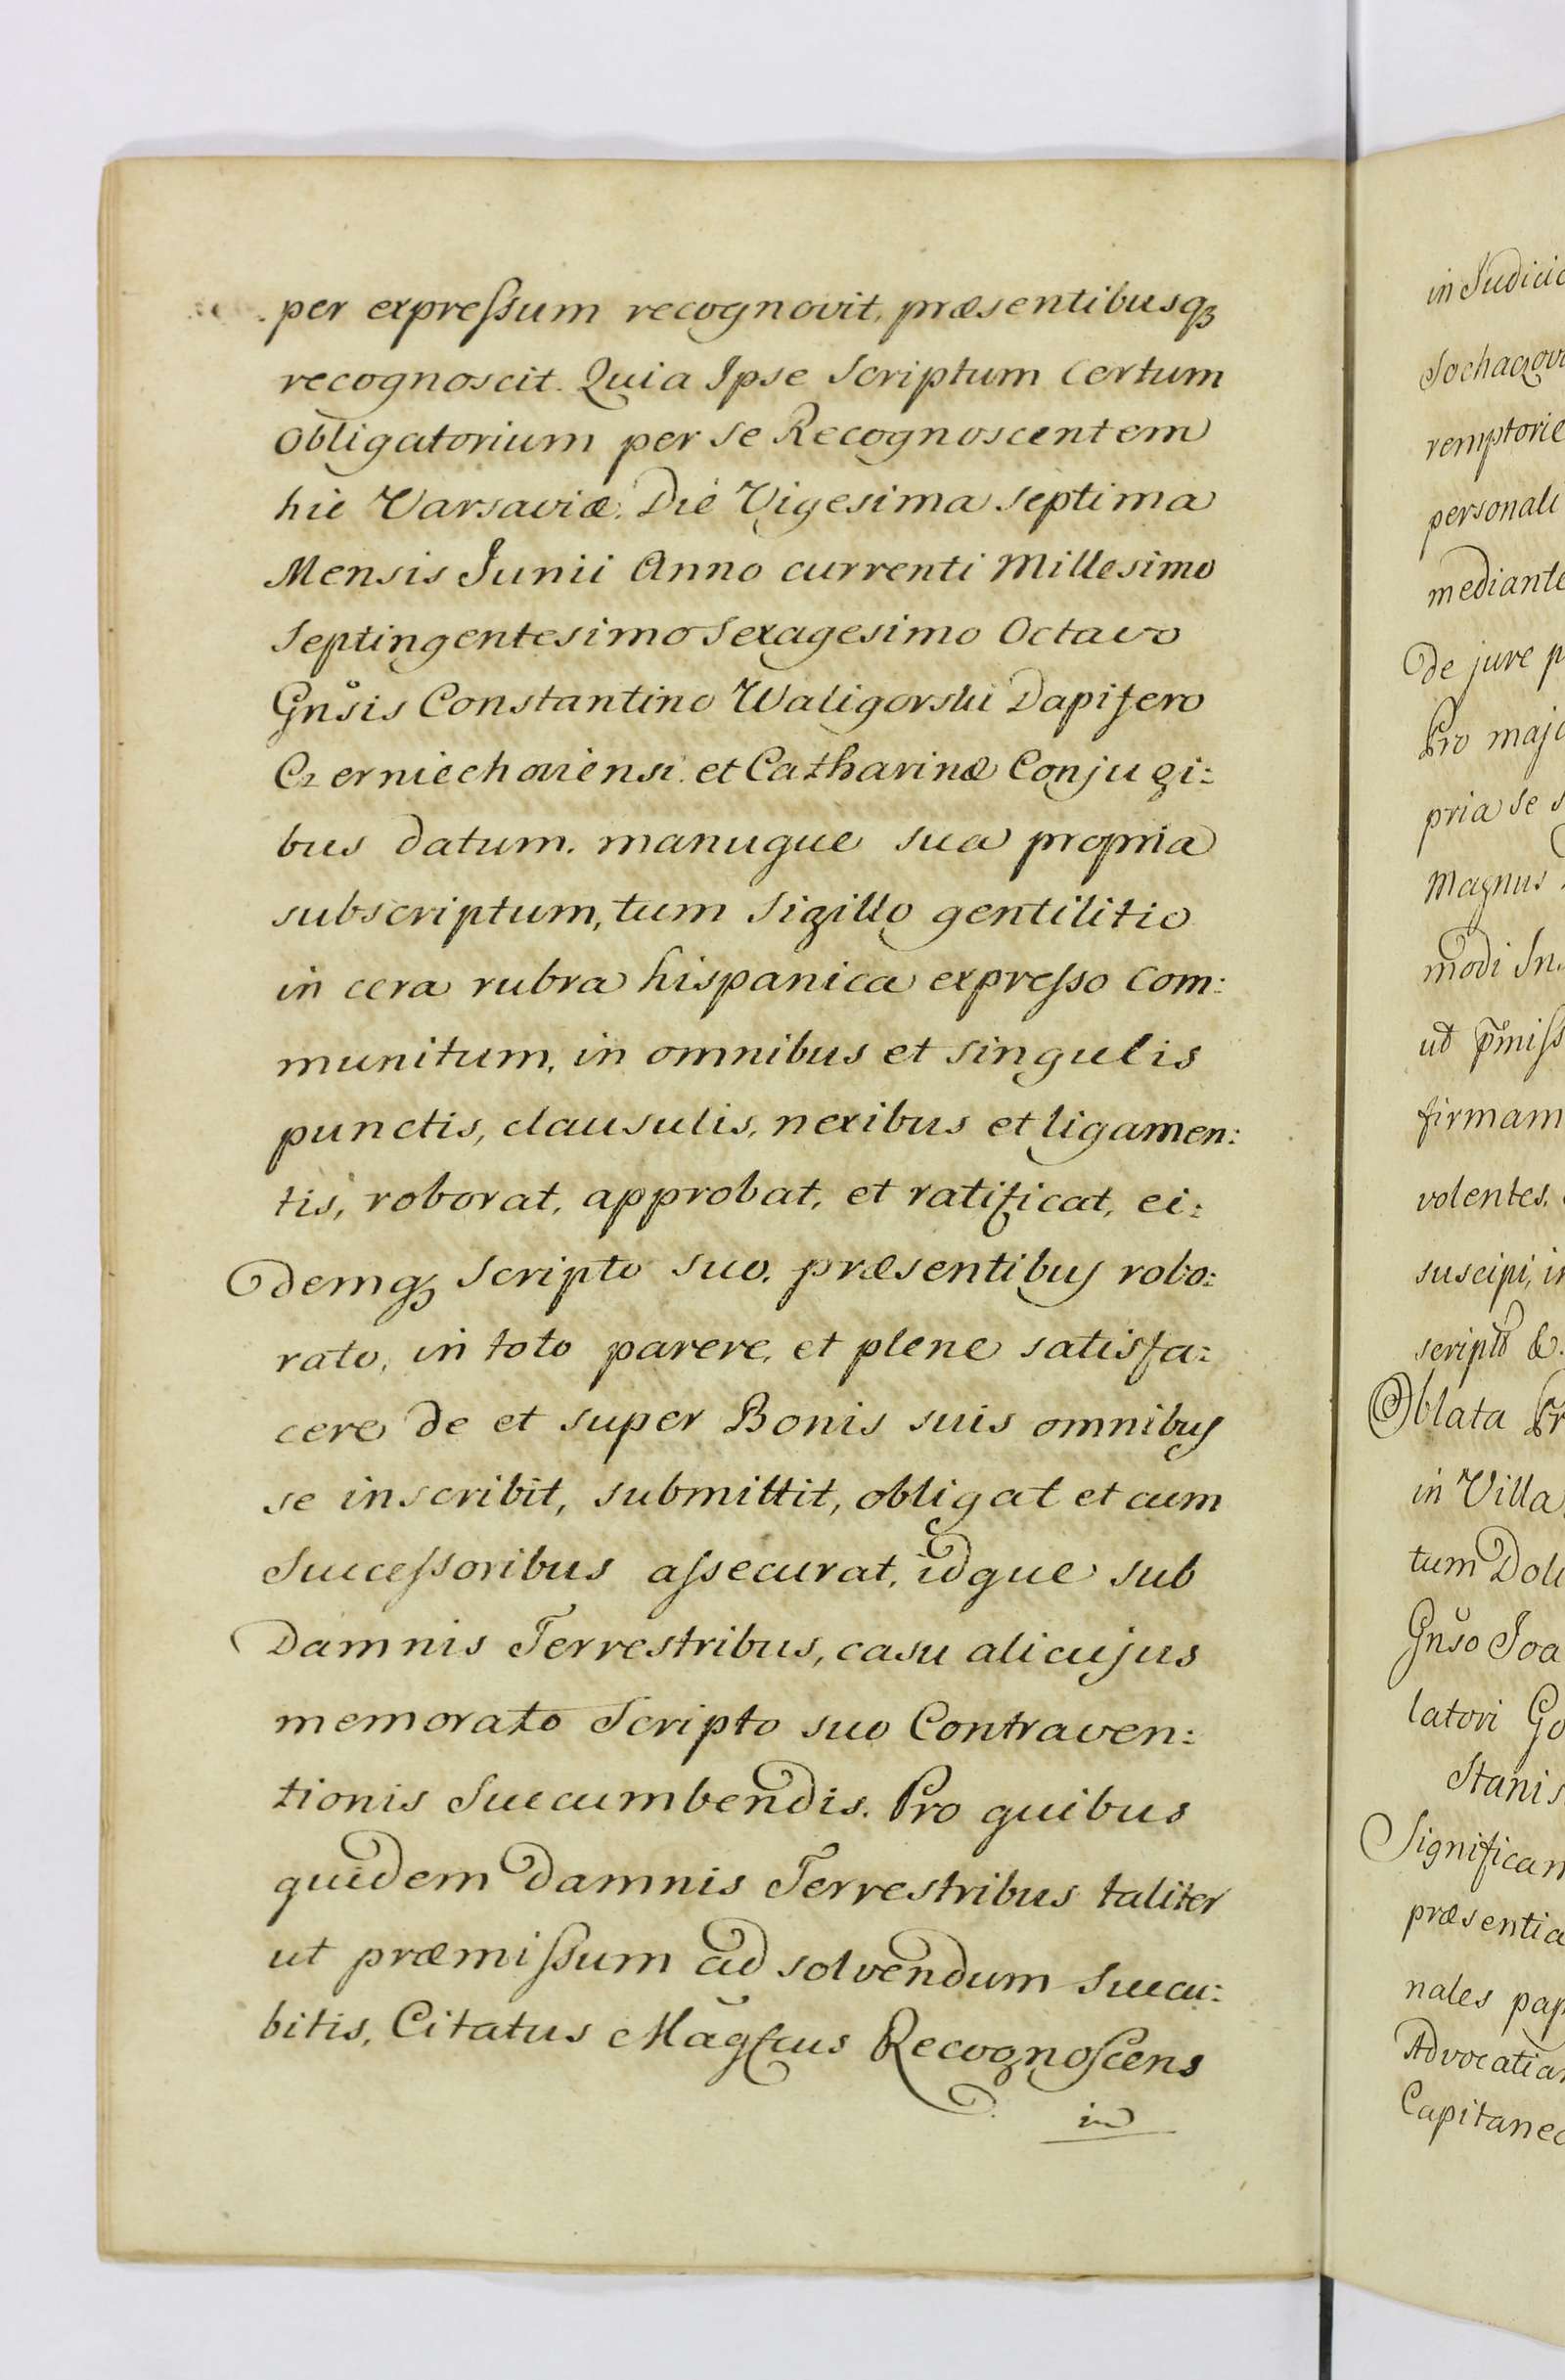 per expreſsum recognovit, præsentibusq3
recognoscit. Quia Ipse Scriptum Certum
Obligatorium per Se Recognoscentem
hic Varsaviæ. Die Vigesima Septima
Mensis Junii Anno currenti Millesimo
Septingentesimo Sexagesimo Octavo
Gnsis Constantino Waligorski Dapifero
Czerniechoviensi. et Catharinæ Conjugi:
bus datum. manuque sua propria
subscriptum, tum Sigillo gentilitio
in cera rubra hispanica expreſso Com:
munitum, in omnibus et singulis
punctis, clausulis, nexibus et ligamen:
tis, roborat, approbat, et ratificat, ei:
demq3 Scripto suo. præsentibus robo:
rato, in toto parere, et plene satisfa:
cere de et super Bonis suis omnibus
se inscribit, submittit, obligat et cum
Succeſsoribus aſsecurat, idque sub
Damnis Terrestribus, casu alicujus
memorato Scripto suo Contraven:
tionis Succumbendis. Pro quibus
quidem Damnis Terrestribus taliter
ut præmiſsum ad solvendum Succu:
bitis, Citatus Magfcus Recognoſcens
in
in Judicio
Sochaczovi
remptorie
personali
mediante
De jure p
Pro majo
pria Se s
Magnus
modi In
ut pmiſs
firmam
volentes.
suscipi, in
scripto &.
Oblata Pr
in Villa
tum Dol
Gnso Joa
latori Go
Stanis
Significan
præsentia
nales pap
Advocatia
Capitaneo